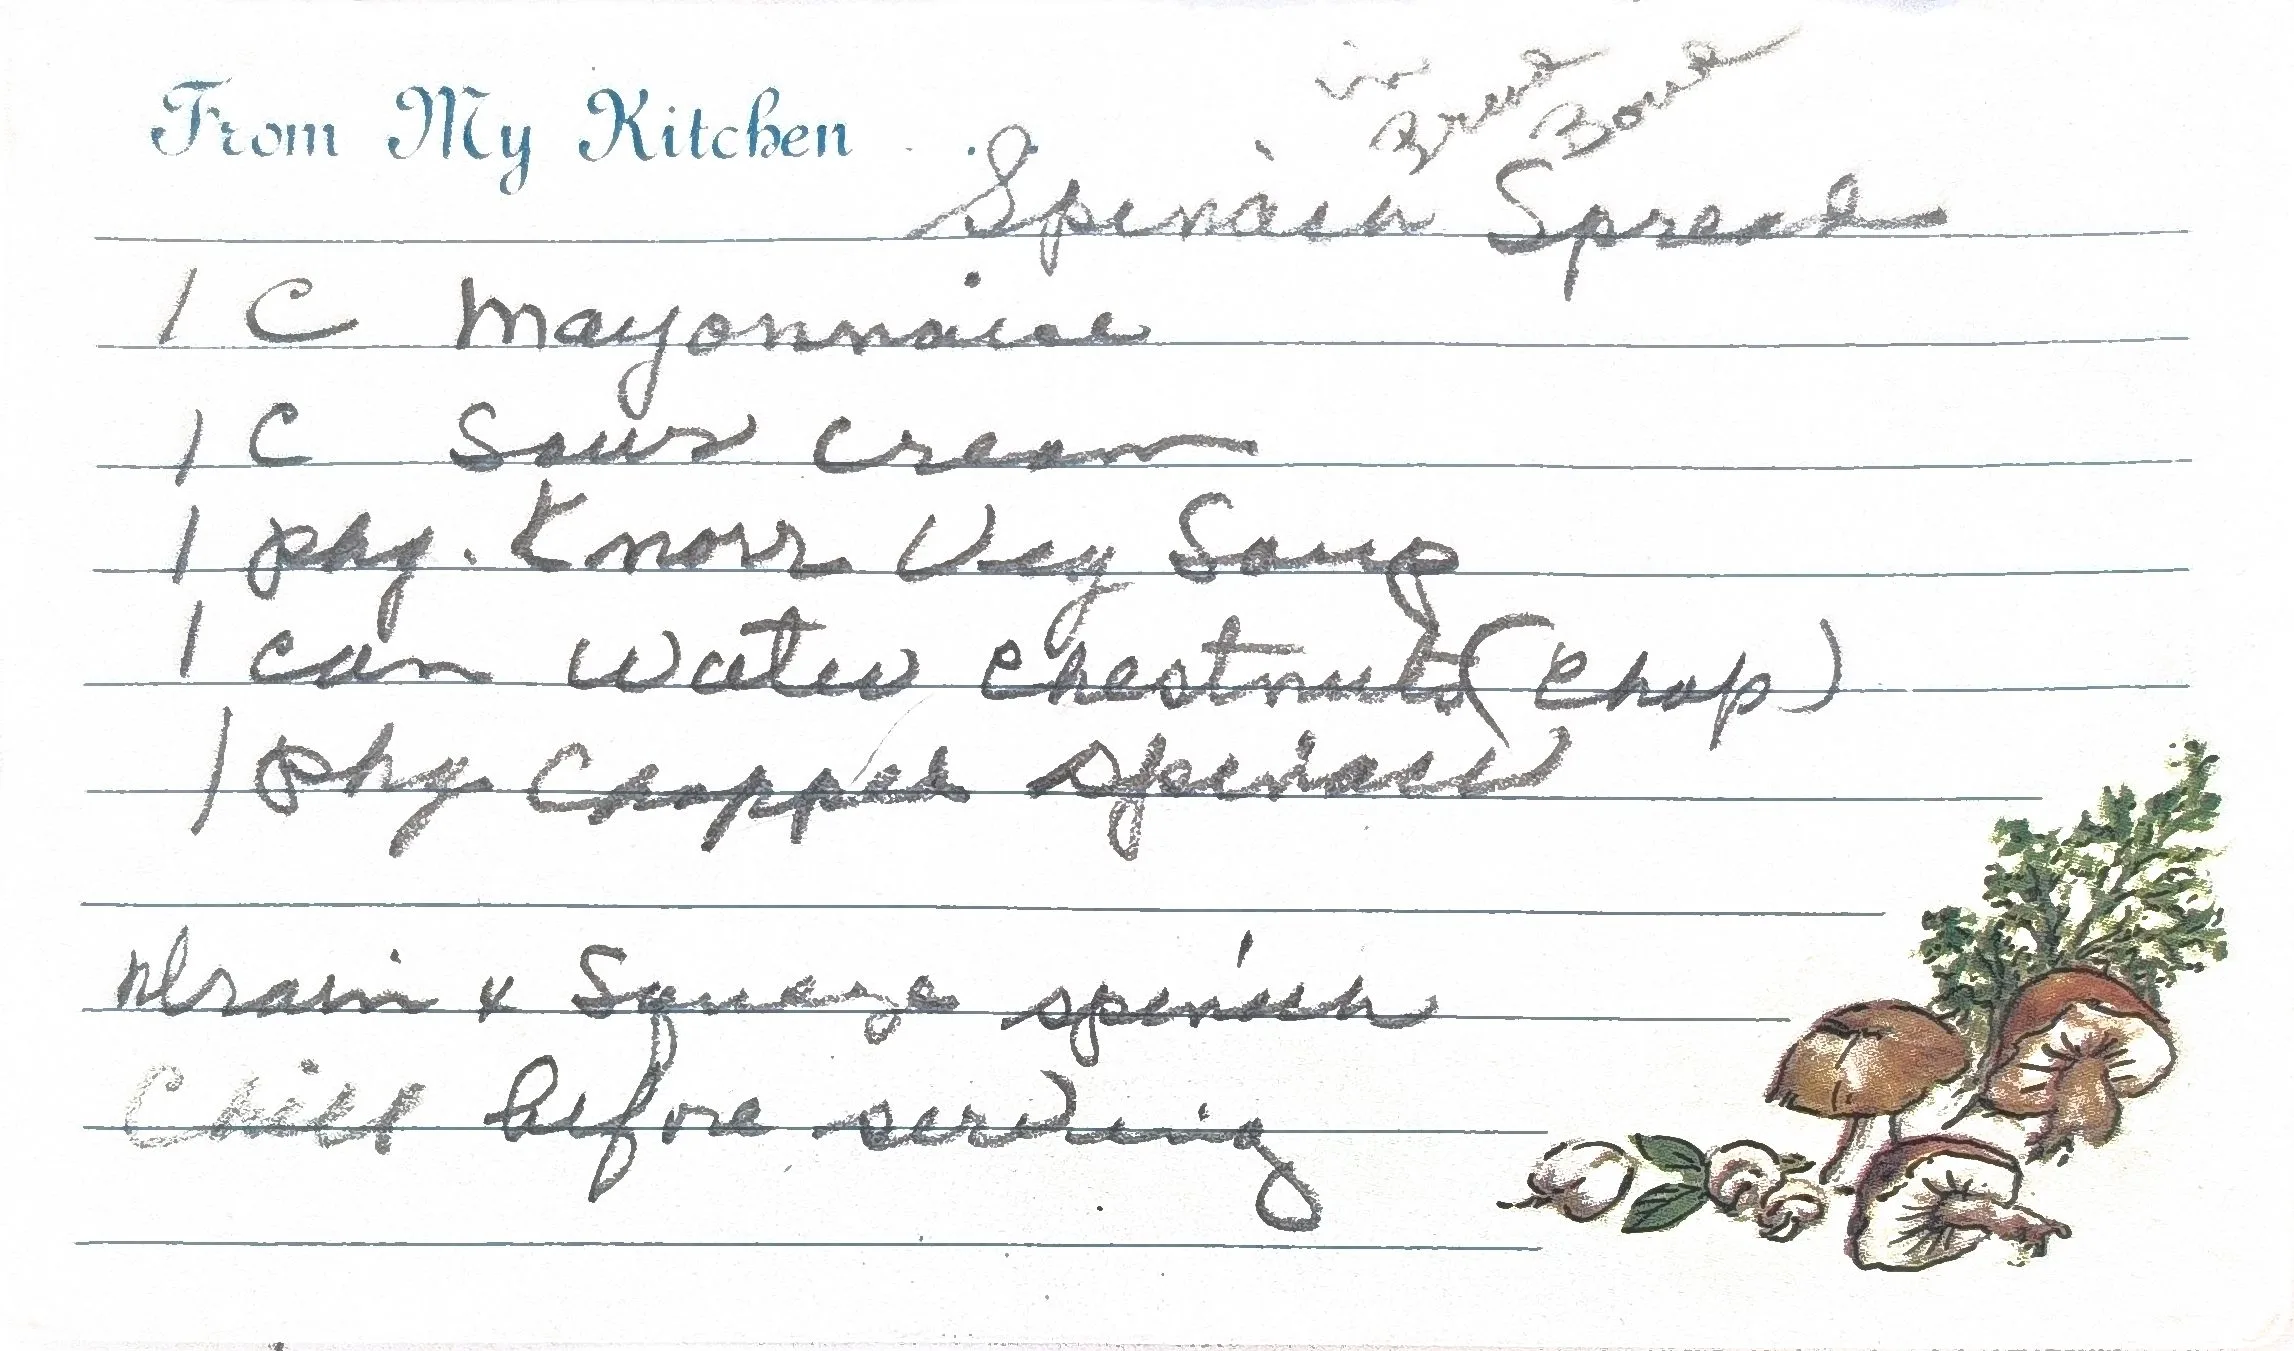 From My Kitchen . . .
in
Bread Bowl
Spinach Spread
1 C Mayonnaise
1 C Sour Cream
1 pkg. Knorr Veg Soup
1 can Water Chestnuts (Chop)
1 pkg Chopped Spinach
Drain & Squeeze spinach
Chill before serving